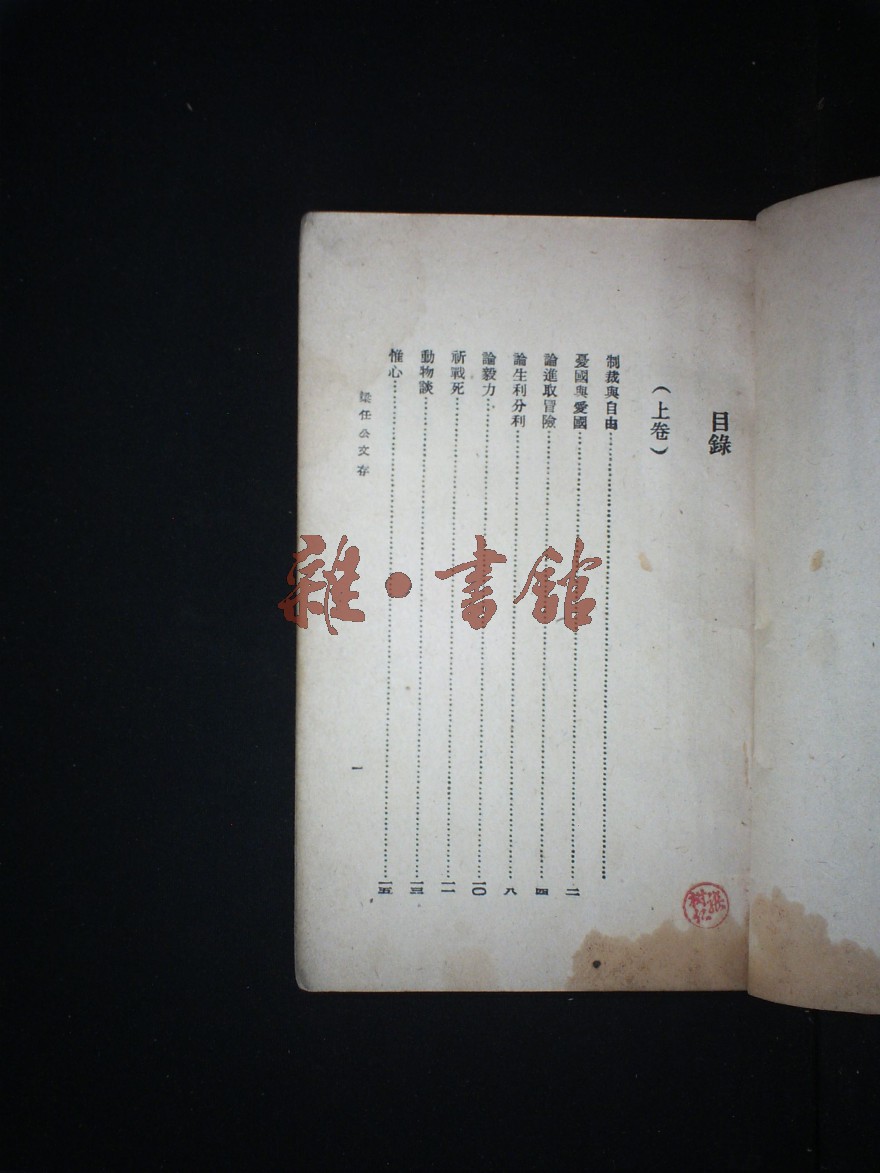 目錄
(上卷)
制裁與自由
憂國與愛國……二
論進取冒險……四
論生利分利……八
論毅力……一〇
祈戰死……一一
動物談……一三
惟心……一五
梁任公文存
一
雜·書館